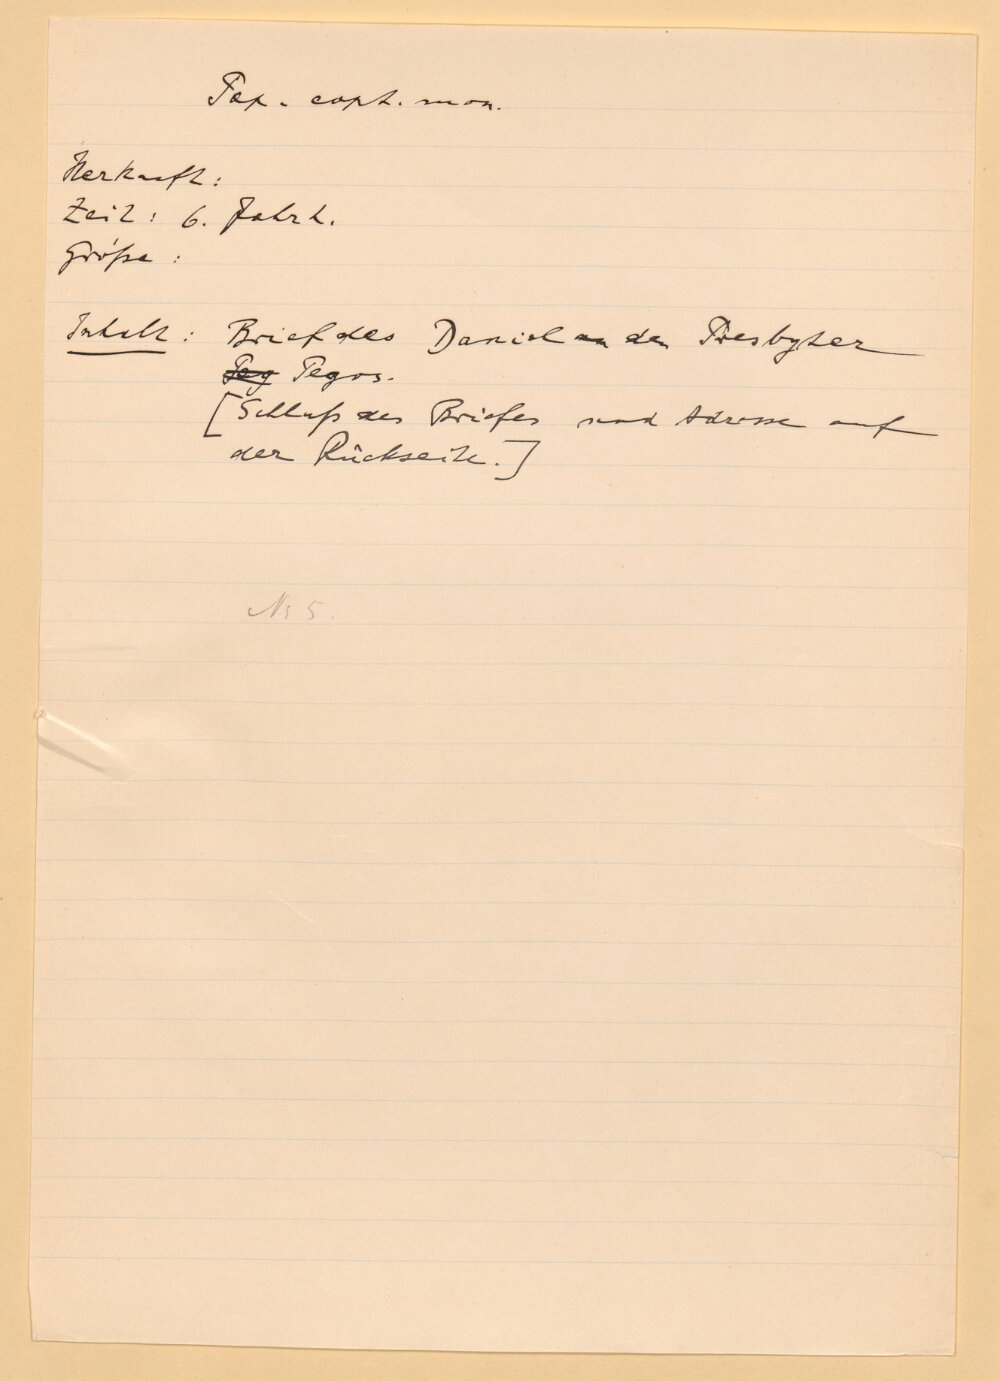 Pap. copt. mon.
Herkunft:
Zeit: 6. Jahrh.
Größe :
Inhalt: Brief des Daniel an den Presbyter
Peg Pegos.
[Schluß des Briefes und Adresse auf
der Rückseite.]
No 5.